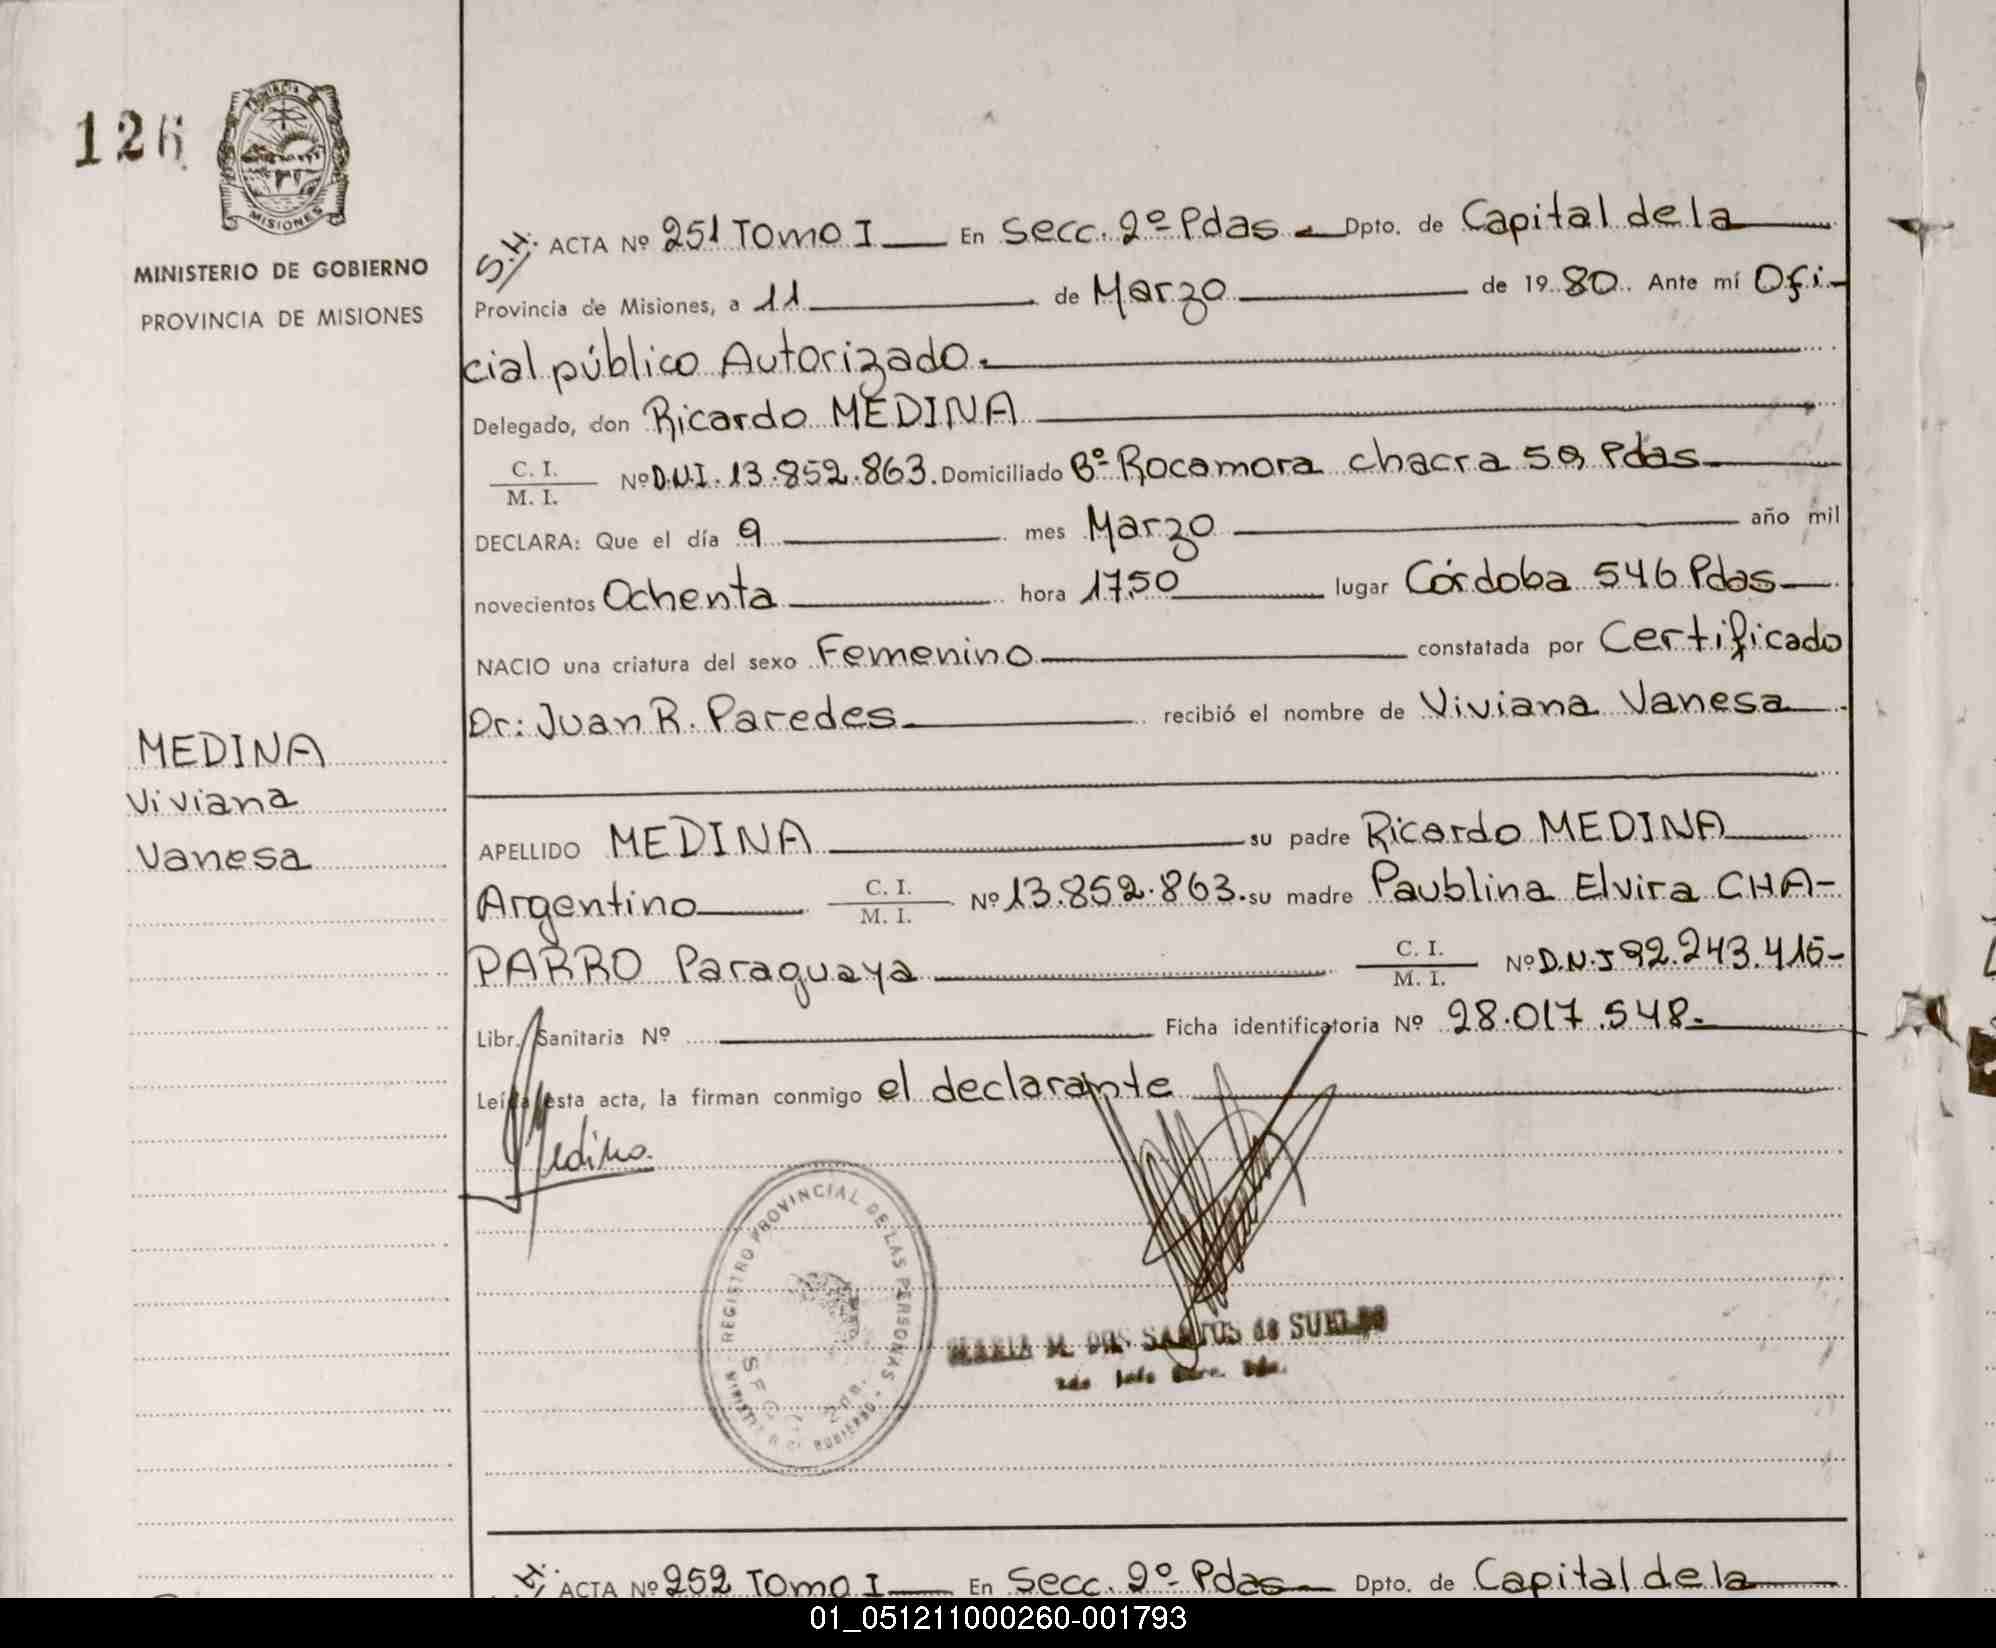 126
MINISTERIO DE GOBIERNO
PROVINCIA DE MISIONES
MISIONES
S.H. ACTA Nº 251 Tomo I En Secc. 2º Pdas Dpto. de Capital de la
Provincia de Misiones, a 11 de Marzo de 1980. Ante mí Ofi-
cial público Autorizado.
Delegado, don Ricardo MEDINA
C. I.
M. I. Nº D.N.I. 13.852.863. Domiciliado Bº Rocamora chacra 59 Pdas
DECLARA: Que el día 9 mes Marzo año mil
novecientos Ochenta hora 17,50 lugar Córdoba 546 Pdas
NACIO una criatura del sexo Femenino constatada por Certificado
Dr: Juan R. Paredes recibió el nombre de Viviana Vanesa
MEDINA
Viviana
Vanesa
APELLIDO MEDINA su padre Ricardo MEDINA
Argentino C. I. M. I. Nº 13.852.863. su madre Paublina Elvira CHA-
PARRO Paraguaya C. I. M. I. Nº D.N.I 92.243.415-
Libr. Sanitaria Nº Ficha identificatoria Nº 28.017.548.
Leída esta acta, la firman conmigo el declarante
Medina
REGISTRO PROVINCIAL DE LAS PERSONAS
MARIA M. DOS SANTOS de SUELDO
S.H. ACTA Nº 252 Tomo I En Secc. 2º Pdas Dpto. de Capital de la
01_051211000260-001793